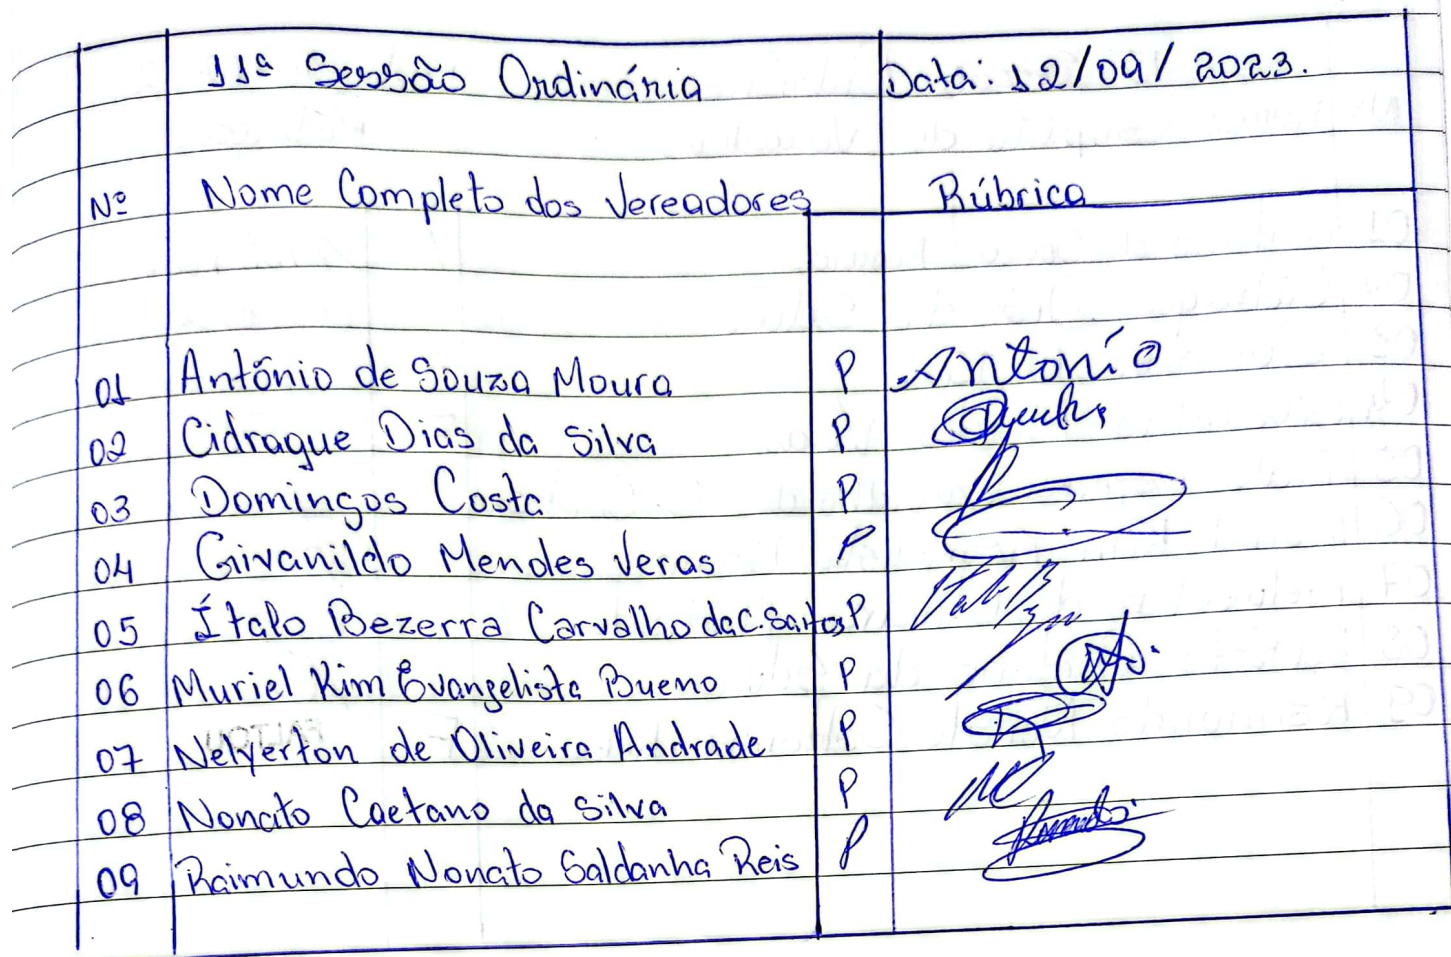 11ª Sessão Ordinária Data: 12/09/2023.
Nº Nome Completo dos Vereadores Rúbrica
01 Antônio de Souza Moura P Antonío
02 Cidrague Dias da Silva P
03 Domingos Costa P
04 Givanildo Mendes Veras P
05 Ítalo Bezerra Carvalho da C. Santos P
06 Muriel Kim Evangelista Bueno P
07 Nelyerton de Oliveira Andrade P
08 Nonato Caetano da Silva P
09 Raimundo Nonato Saldanha Reis P